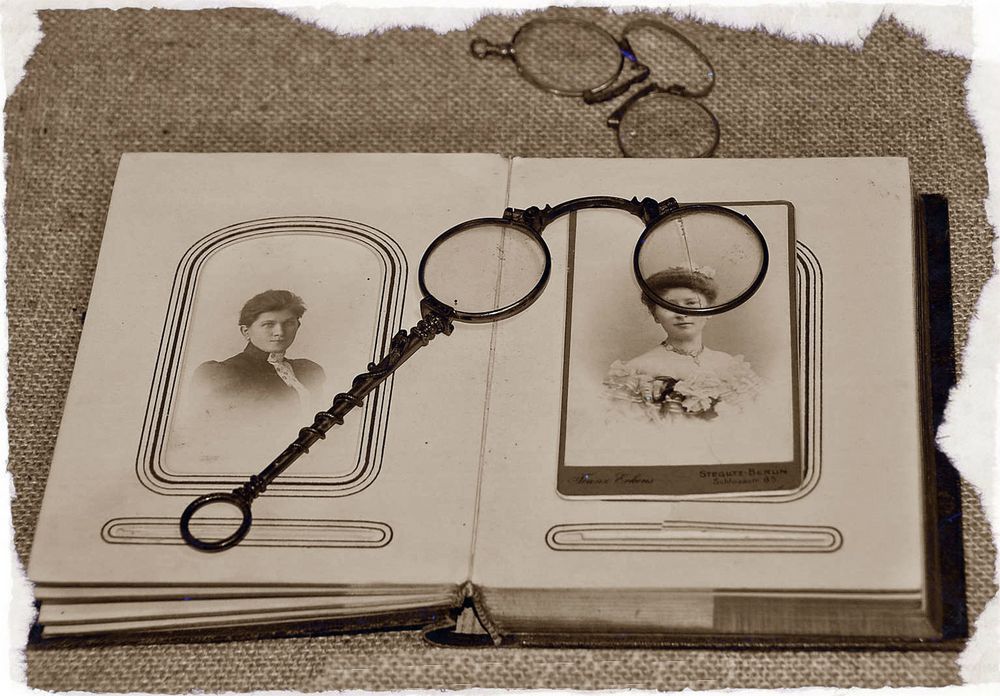 Franz Erkens
STEGLITZ-BERLIN
Schlossstr. 85.